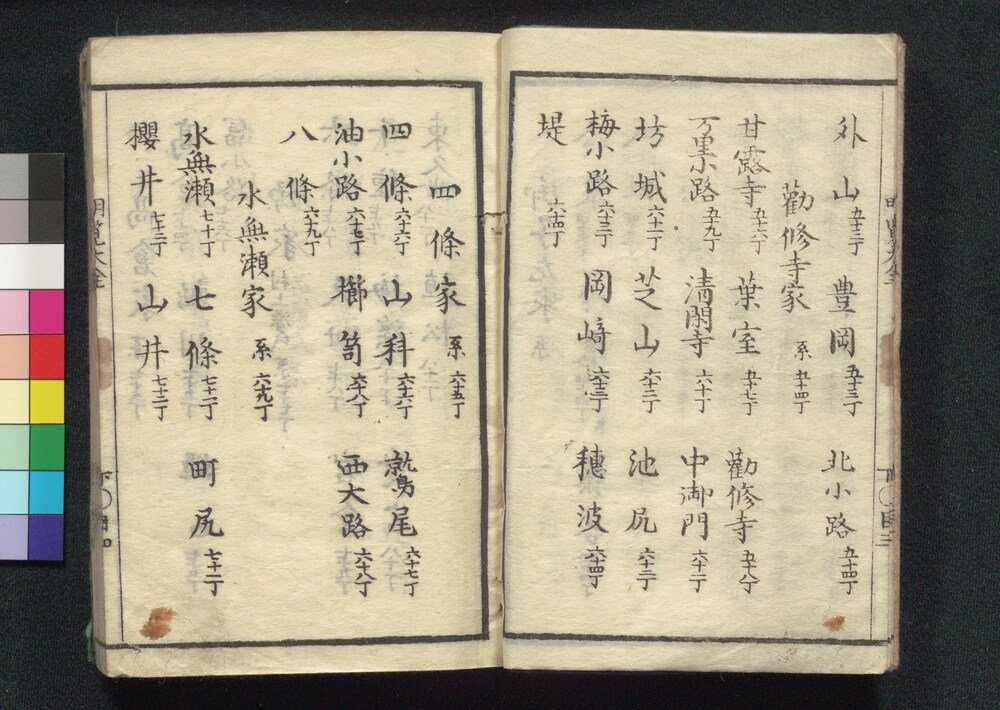 外山 五十三丁 豊岡 五十三丁 北小路 五十四丁
勸修寺家 系 五十四丁
甘露寺 五十六丁 葉室 五十七丁 勸修寺 五十八丁
万里小路 五十九丁 清閑寺 六十丁 中御門 六十一丁
坊城 六十二丁 芝山 六十二丁 池尻 六十二丁
梅小路 六十三丁 岡崎 六十三丁 穗波 六十四丁
堤 六十四丁
四條家 系 六十五丁
四條 六十六丁 山科 六十六丁 鷲尾 六十七丁
油小路 六十七丁 櫛笥 六十八丁 西大路 六十八丁
八條 六十九丁
水無瀬家 系 六十九丁
水無瀬 七十丁 七條 七十一丁 町尻 七十一丁
櫻井 七十二丁 山井 七十二丁